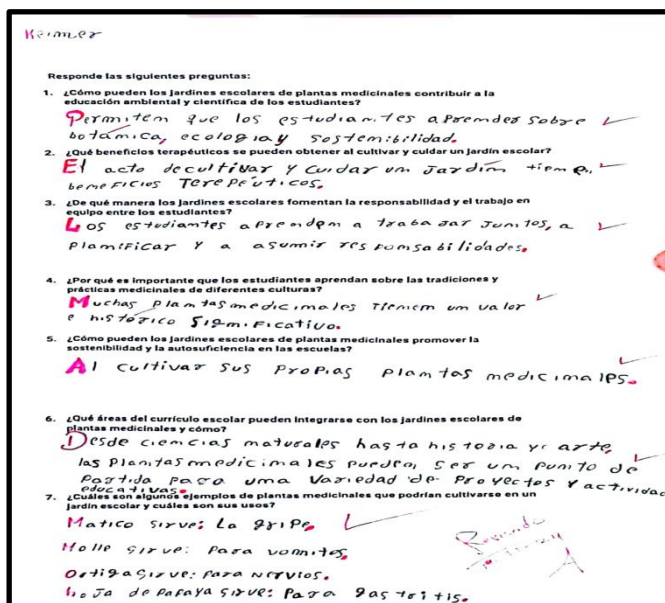 Keimer
Responde las siguientes preguntas:
1. ¿Cómo pueden los jardines escolares de plantas medicinales contribuir a la
educación ambiental y científica de los estudiantes?
Permitem que los estudiamtes apremder sobre
botámica, ecologia y sostemibilidad.
2. ¿Qué beneficios terapéuticos se pueden obtener al cultivar y cuidar un jardín escolar?
El acto de cultivar y cuidar um Jardím tieme
bemeficios Terepéuticos.
3. ¿De qué manera los jardines escolares fomentan la responsabilidad y el trabajo en
equipo entre los estudiantes?
Los estudiamtes apremdem a trabajar Jumtos, a
Plamificar y a asumir respomsabilidades.
4. ¿Por qué es importante que los estudiantes aprendan sobre las tradiciones y
prácticas medicinales de diferentes culturas?
Muchas plamtas medicimales Tiemem um valor
e históRico Sigmificativo.
5. ¿Cómo pueden los jardines escolares de plantas medicinales promover la
sostenibilidad y la autosuficiencia en las escuelas?
Al cultivar sus propias plamtas medicimales.
6. ¿Qué áreas del currículo escolar pueden integrarse con los jardines escolares de
plantas medicinales y cómo?
Desde ciemcias maturales hasta historia y arte,
las plamtas medicimales puedem ser um pumto de
Partida para uma variedad de Proyectos y actividad
educativas.
7. ¿Cuáles son algunos ejemplos de plantas medicinales que podrían cultivarse en un
jardín escolar y cuáles son sus usos?
Matico sirve: La gripe.
Molle sirve: Para vomitos.
Ortiga sirve: Para Nervios.
hoja de papaya sirve: Para gastritis.
Revisado
A